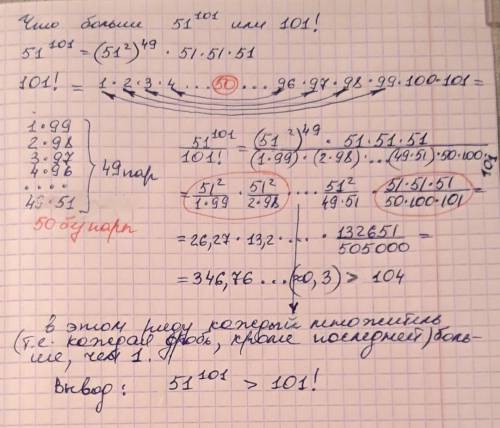 Что больше 51^101 или 101!
51^101 = (51²)^49 · 51·51·51
101! = 1·2·3·4 ... 50 ... 96·97·98·99·100·101 =
1·99
2·98
3·97
4·96
. . . .
49·51
} 49 пар
50 б/у пары
51^101 / 101! = (51²)^49 · 51·51·51 / (1·99)·(2·98)·...(49·51)·50·100·101
= 51²/1·99 · 51²/2·98 ... 51²/49·51 · 51·51·51/50·100·101 =
= 26,27 · 13,2 · ... · 132651/505000 =
= 346,76 ... (≈0,3) > 104
в этом ряду каждый множитель
(т.е. каждая дробь, кроме последней) боль-
ше, чем 1.
Вывод: 51^101 > 101!